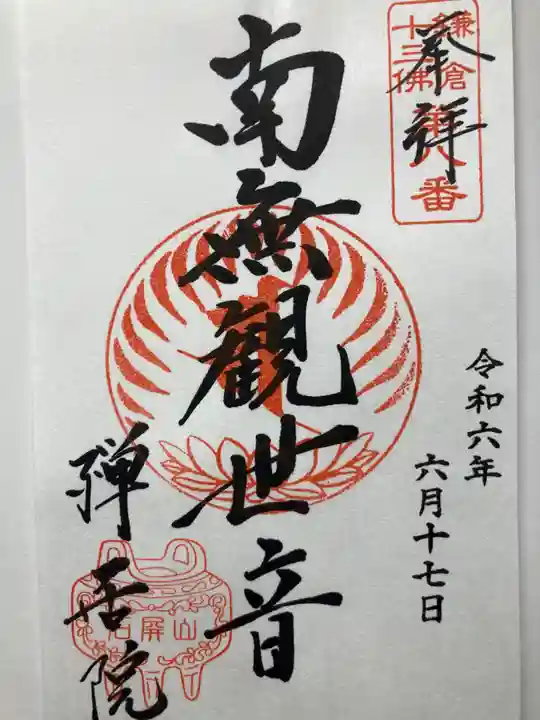 奉拝
鎌倉
十三佛
第八番
令和六年
六月十七日
南無観世音
禅居院
山屏石